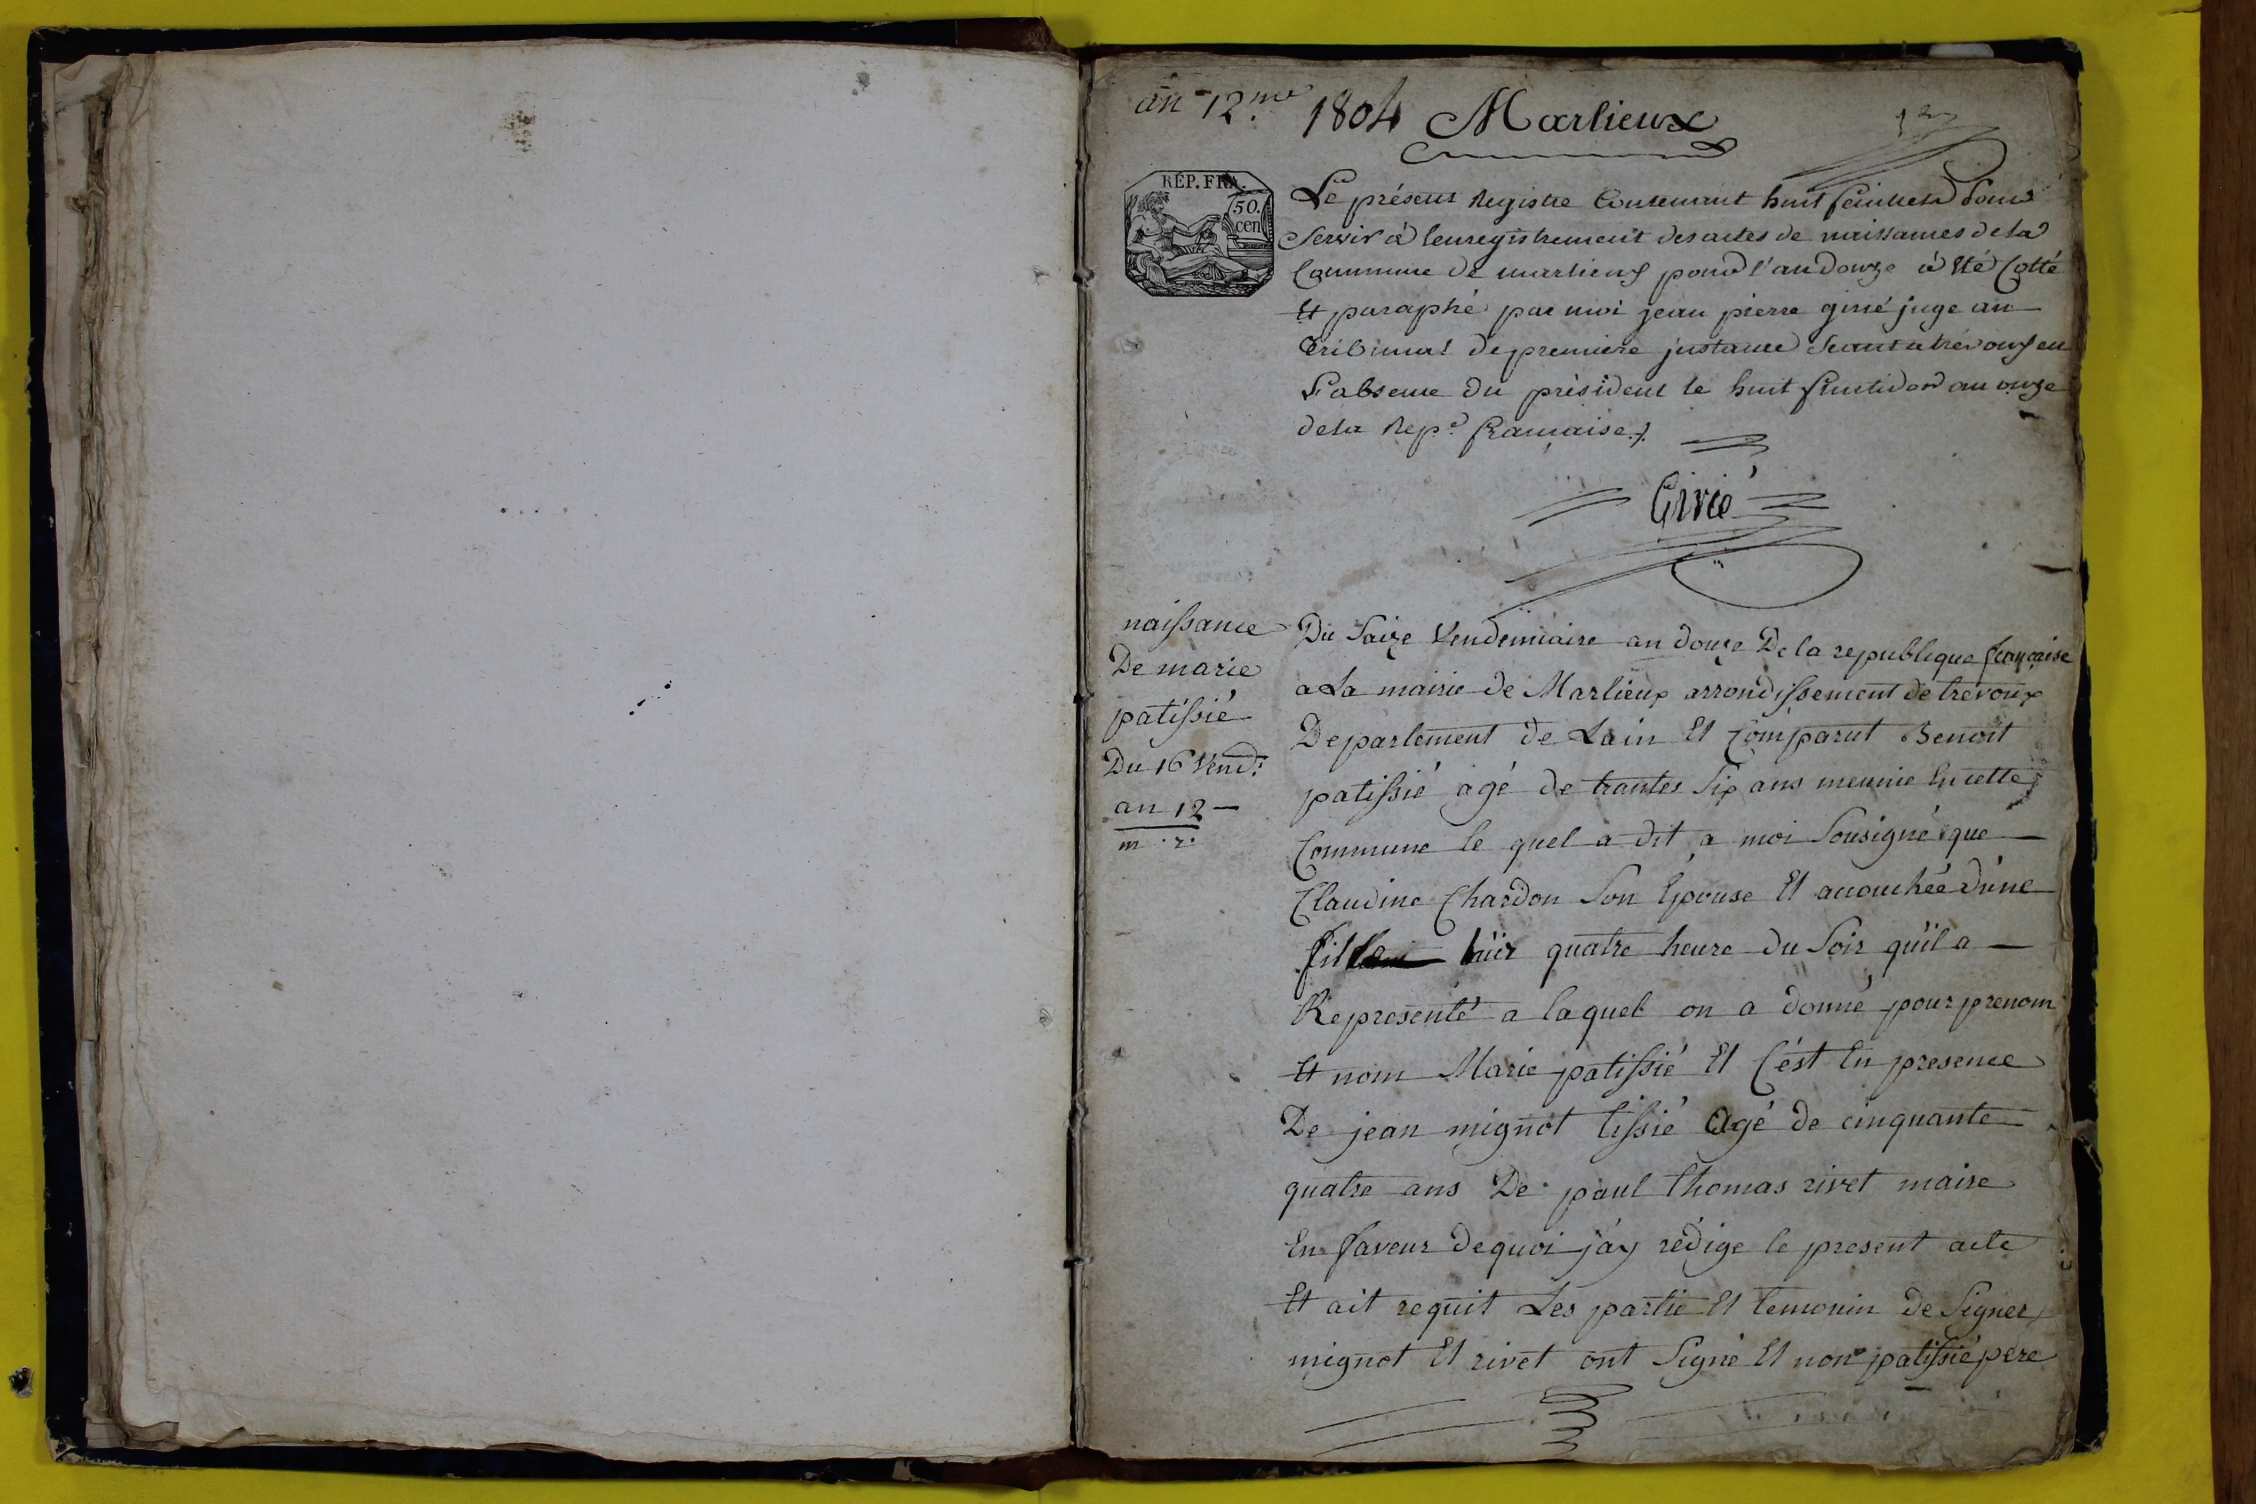 an 12.me 1804 Marlieux
RÉP. FRA.
50.
cen
Le présent Registre Contenant huit feuillets pour
Servir à l'enregistrement des actes de naissances de la
Commune de marlieux pour l'an douze a été Cotté
Et paraphé par moi jean pierre girié juge au
tribunal de premiere jnstance Seant a trévoux en
L'absence du président le huit fructidor an onze
de la Rep.e française ./.
Girié
naissance
De marie
patissié
Du 16 Vend.
an 12 —
m . r.
Du Saize Vendemiaire an douze De la republique française
a La mairie de Marlieux arrondissement de trevoux
Departement de Lain Et Comparut Benoit
patissié agé de trantes Six ans meunie En cette
Commune le quel a dit a moi Sousigné que —
Claudine Chardon Son Epouse Et accouchéé d'une
fille hier quatre heure du Soir qu'il a —
Representé a laquel on a donné pour prenom
Et nom Marie patissié Et C'ést En presence
De jean mignot tissié Agé de cinquante
quatre ans De paul thomas rivet maire
En faveur de quoi j'ay rédige le present acte
Et ait requit Les partie Et temonin de Signer
mignot Et rivet ont Signé Et non patissié pere